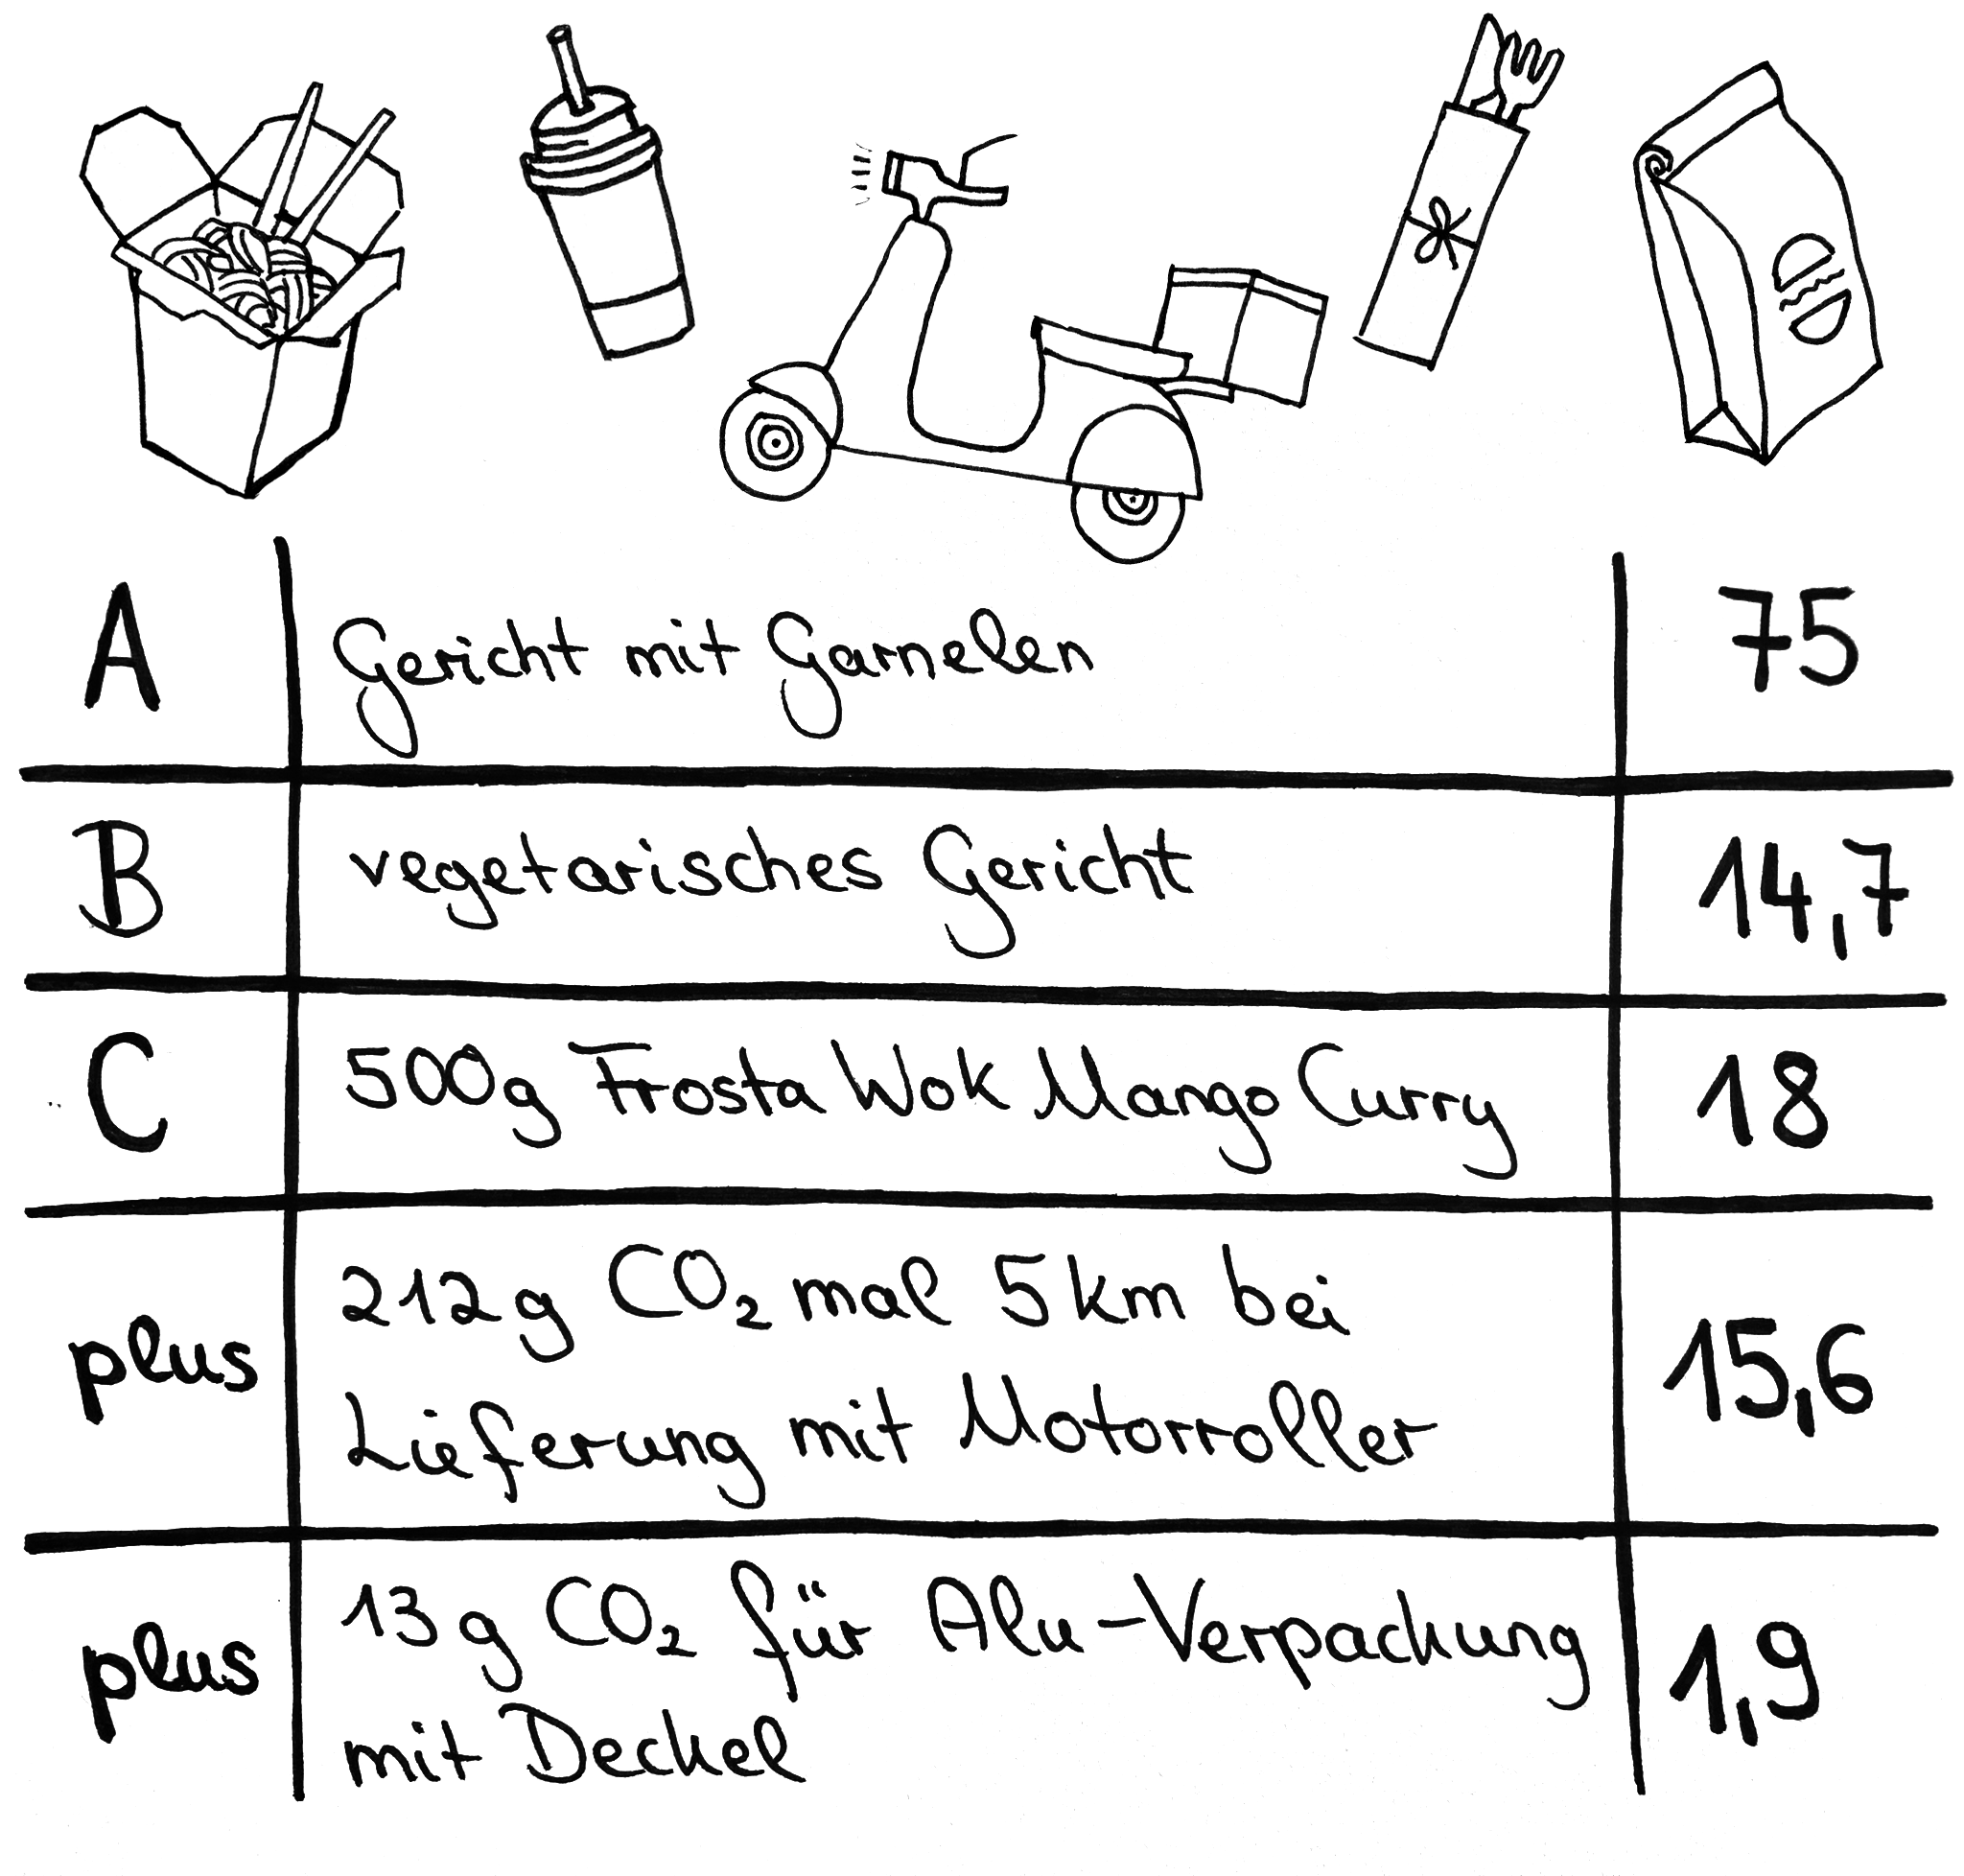 A Gericht mit Garnelen 75
B vegetarisches Gericht 14,7
C 500g Frosta Wok Mango Curry 18
plus 212g CO₂ mal 5km bei
Lieferung mit Motorroller 15,6
plus 13g CO₂ für Alu-Verpackung
mit Deckel 1,9